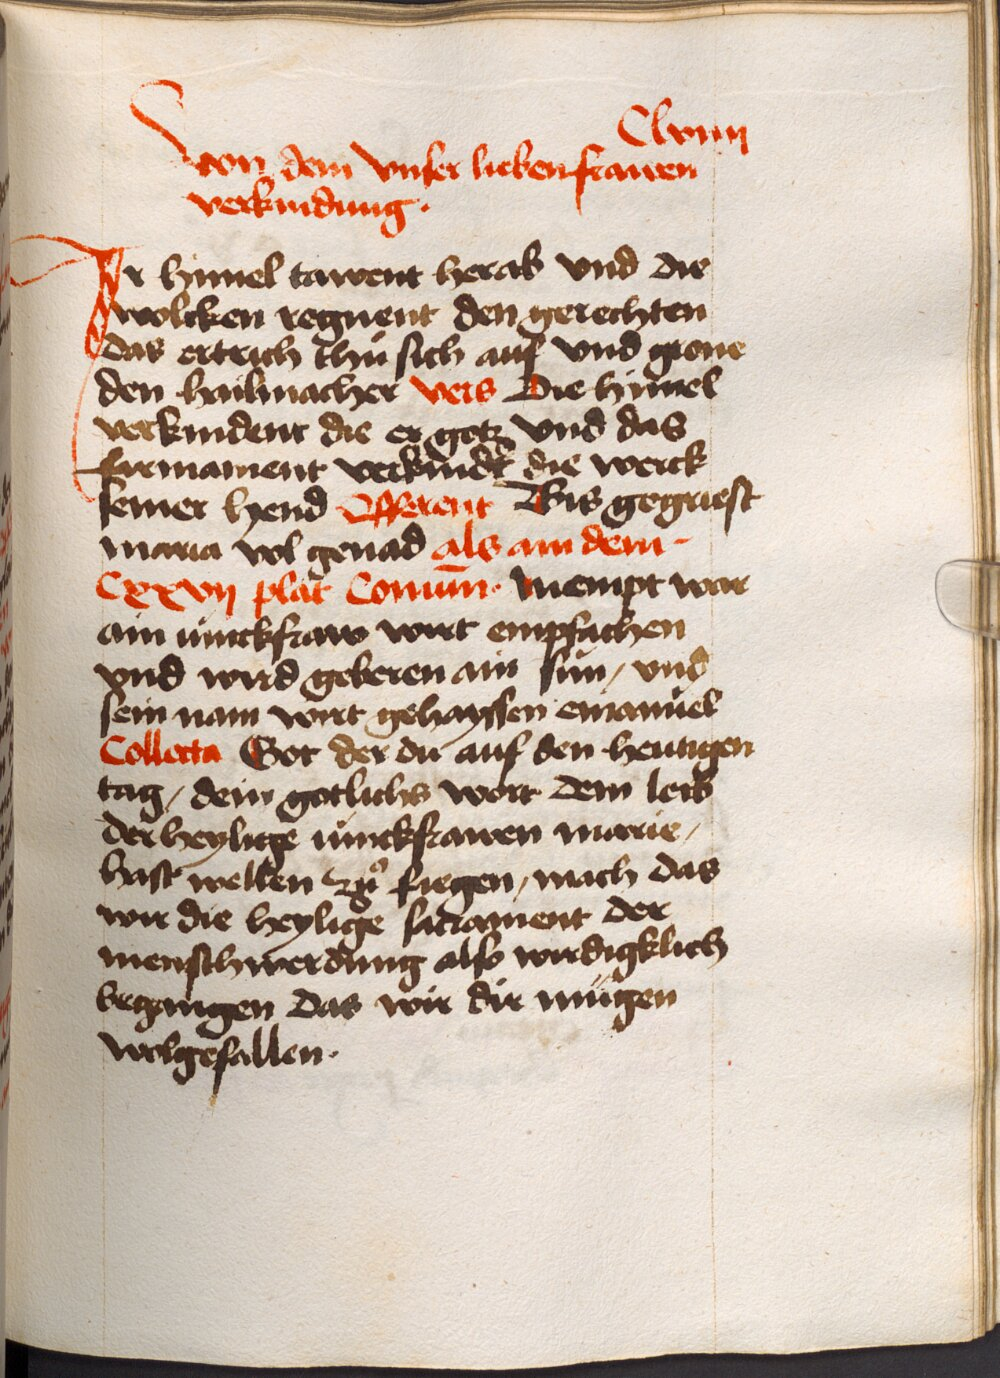 Clviiii
von dem vnser lieben frawen
verkindung.
Ir himel tawent herab vnd die
wolcken regnent den gerechten
das ertrich thů sich auf vnd grone
den hailmacher vers Die himel
verkindent die er gotz vnd das
firmament verkindt die werck
seiner hend Offerent Bis gegriest
maria vol genad als am dem
Cxxvij plat Comūn. Niempt war
ain iunckfraw wirt empfachen
vnd wird geberen ain sun / vnd
sein nam wirt gehayssen emanuel
Collecta Got der du auf den heutigen
tag / dein gotlichs wort dem leib
der heylige iunckfrawen marie /
hast wellen zů fiegen / mach das
wir die heylige sacrament der
menschwerdung also wirdigklich
begangen das wir dir mügen
wolgefallen.